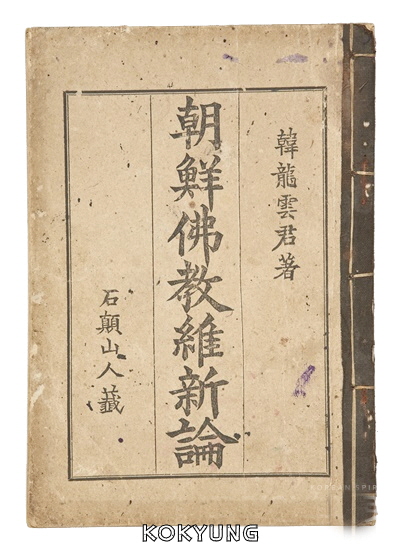 韓龍雲君著
朝鮮佛敎維新論
石顚山人籤
KOKYUNG